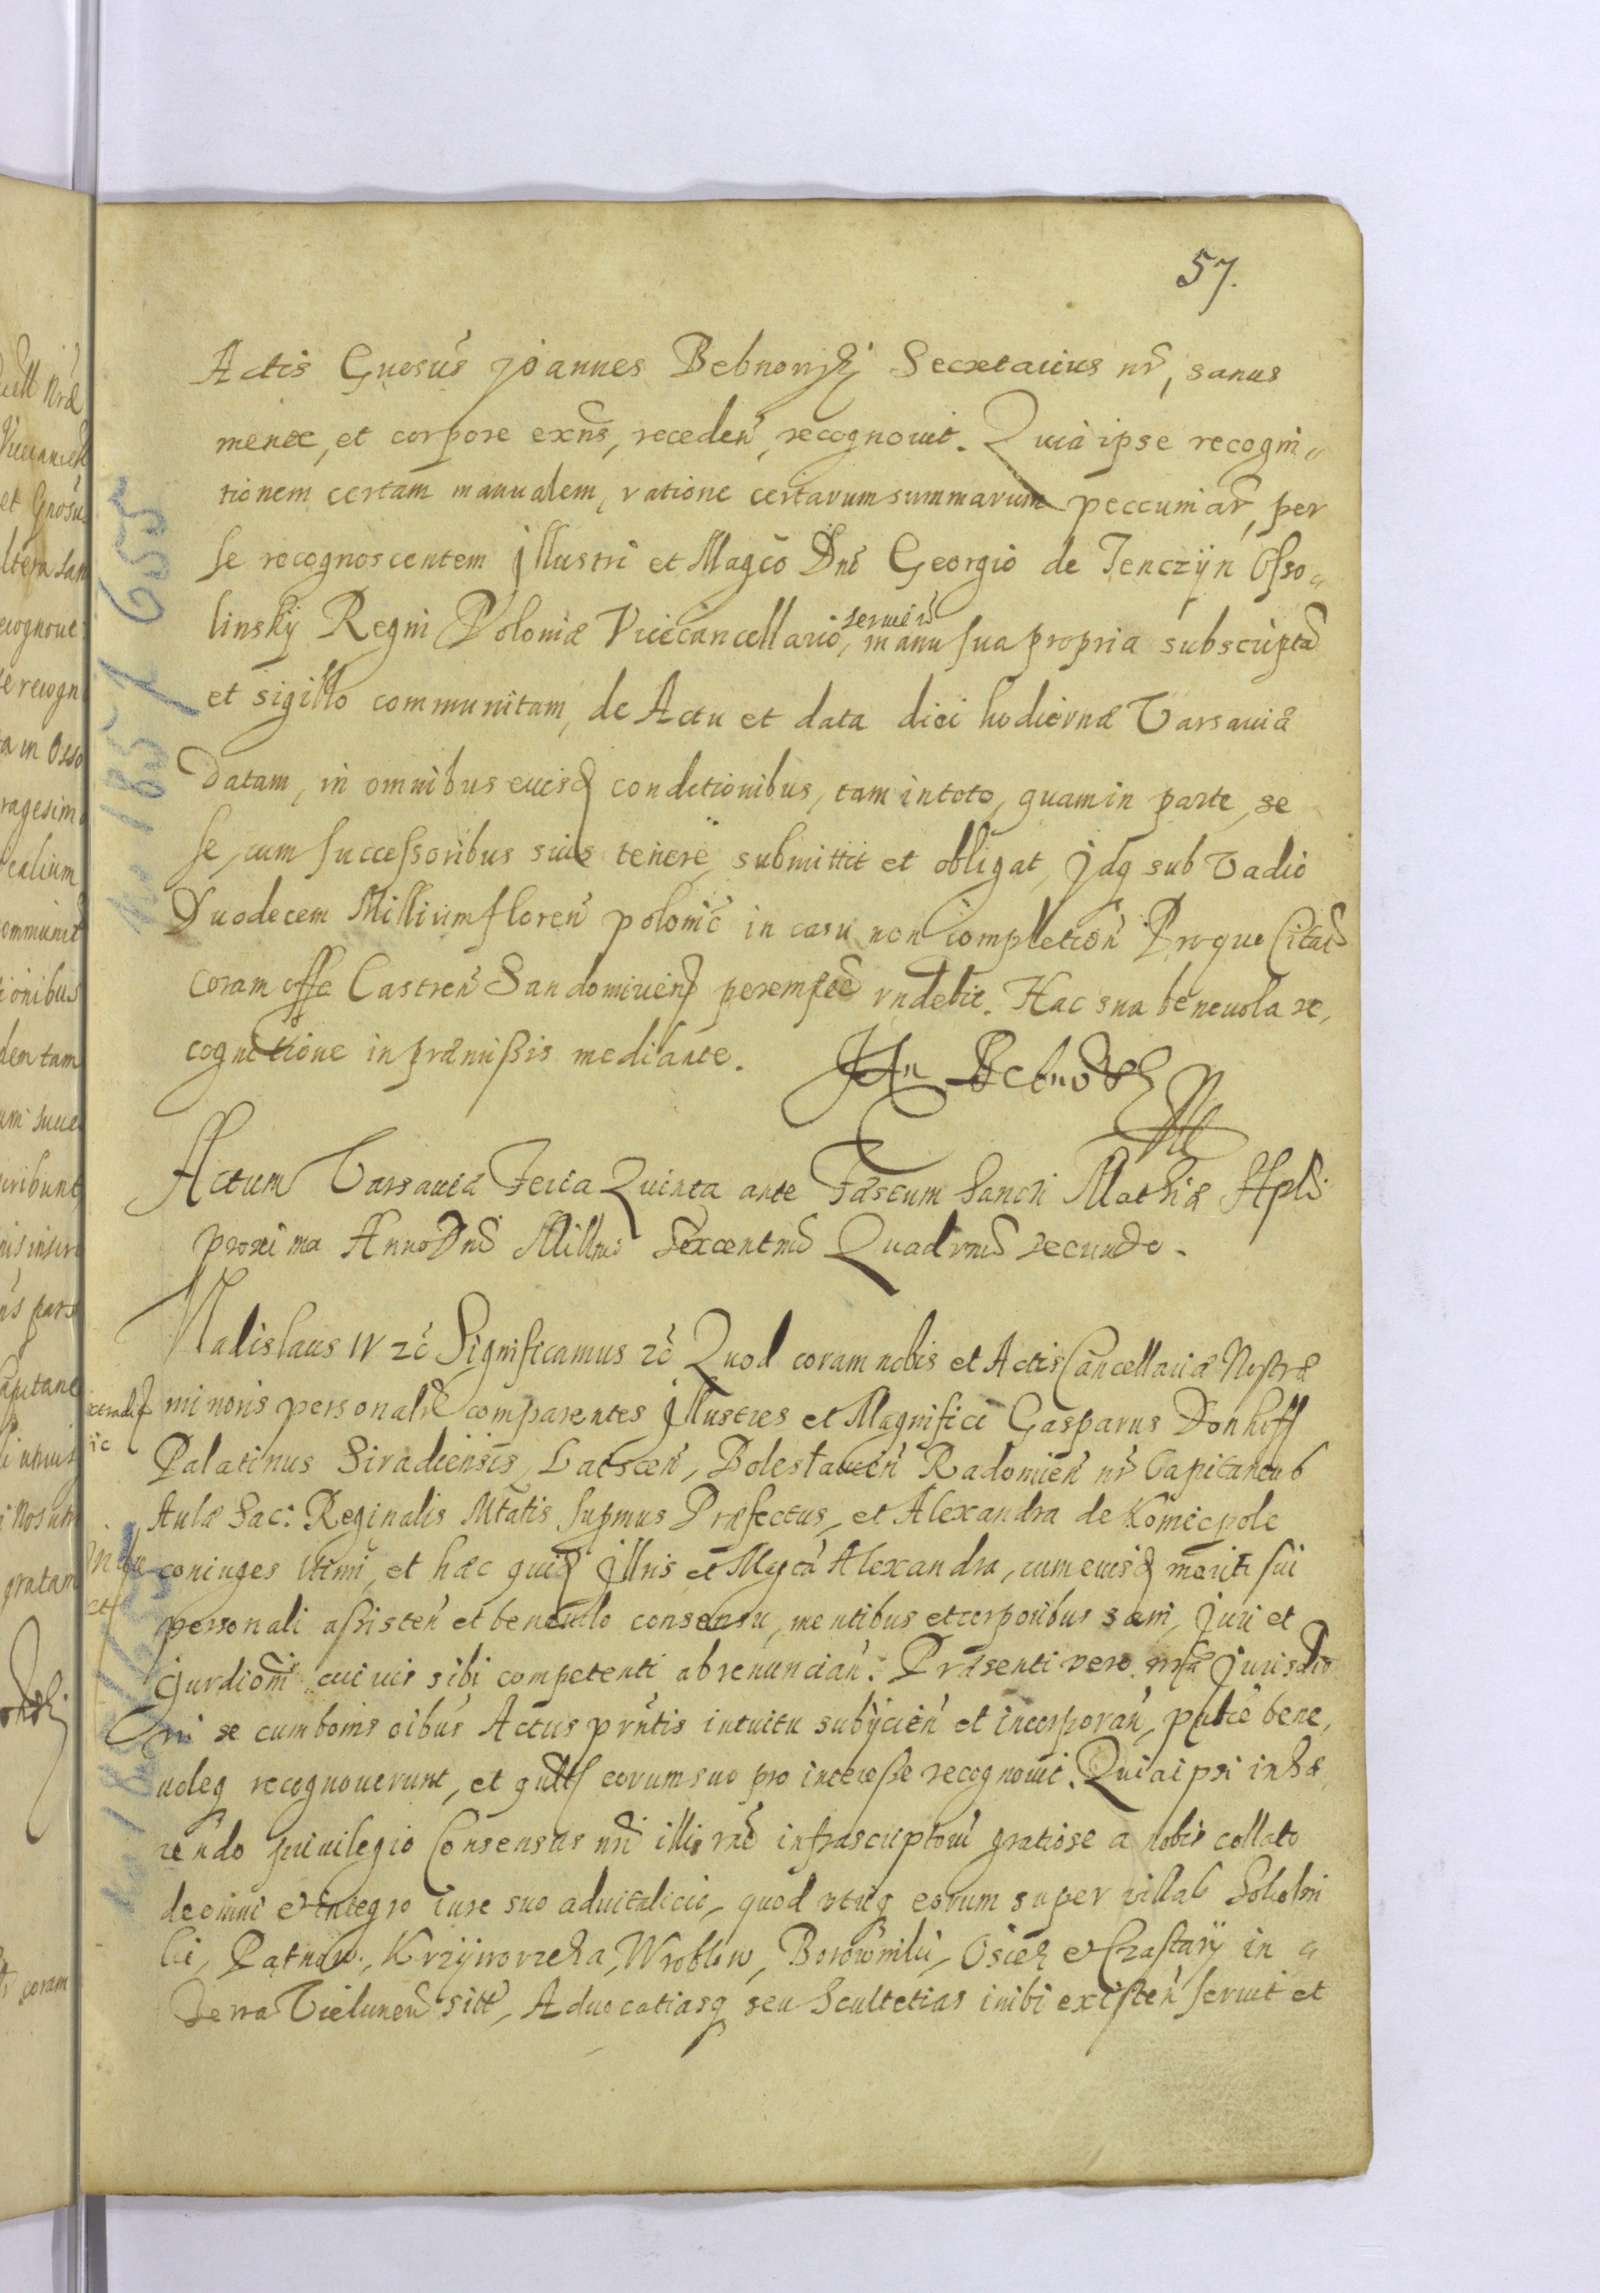 57.
Actis Gnosus Joannes Bebnowskj Secretarius nr, sanus
mente, et corpore exns, receden, recognovit. Quia ipse recogni„
tionem certam manualem, ratione certarum summarum peccuniar, per
se recognoscentem Illustri et Magco Dno Georgio de Tenczÿn Osso„
linskÿ Regni Poloniæ Vicecancellario, servien
manu sua propria subscripta
et sigillo communitam, de Actu et data diei hodiernæ Varsaviæ
Datam, in omnibus eiusd conditionibus, tam in toto, quam in parte, se
se, cum successoribus suis tenere, submittit et obligat, Jdq sub vadio
Duodecem Millium floren polonic in casu non completion Proque
coram offo Castren Sandomirien peremptie rndebit. Hac sua benevola re,
cognitione in præmissis mediante. Jan Bebnowsk
Actum Varsaviæ Feria Quinta ante Fæstum Sancti Mathiæ Apli
proxima Anno Dni Millmo Sexcentmo Quadrmo secundo.
Vladislaus IV zc Significamus zc Quod coram nobis et Actis Cancellariæ Nostræ
minoris personalr comparentes Jllustres et Magnifici Gasparus Donhoff
Palatinus Siradiensis, Latscen, Bolestavien Radomien nr Capitaneus
Aulæ Sac: Reginalis Mtatis Supmus Præfectus, et Alexandra de Koniecpole
coniuges ltimi, et hæc quid Jllris et Mgca Alexandra, cum eiusd mariti sui
personali assisten et benevolo consensu, mentibus et corporibus sani, Juri et
Jurdioni cuivis sibi competenti abrenuncian. Præsenti vero nræ Jurisdio
ni se cum bonis oibus Actus prntis intuitu subÿcien et incorporan, publce bene,
voleq recognoverunt, et quilts eorum suo pro interesse recognovit. Quia ipsi inhæ
rendo privilegio Consensus nri illis rne infrascriptoru gratiose a nobis collato
de omni et integro iure suo advitalicio, quod utrq eorum super villas Sokolni
ki, Pątnow, Krzÿworzeka, Wroblow, Borowniki, Osiek et Czastarÿ in
Terra Vielunen sitt, Advocatiasq seu Scultetias inibi existen servit et